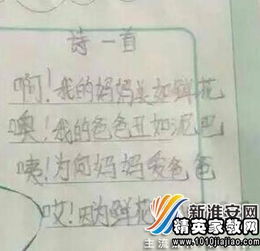 诗一首
啊!我的妈妈美如鲜花
噢!我的爸爸丑如泥巴
咦!为何妈妈爱爸爸
哎!因为鲜花
主流
新淮安网
精英家教网
www.1010jiajiao.com